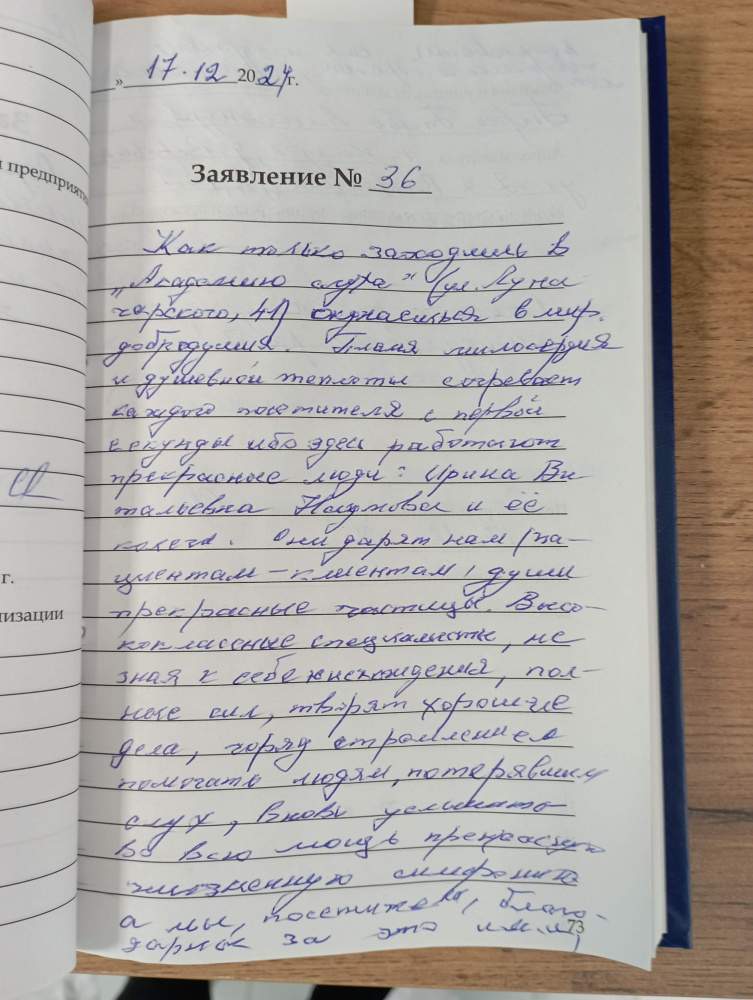 » 17.12 2024 г.
и предприяти
Заявление № 36
Как только заходишь в
„Академию слуха" (ул. Луна
чарского, 41) окунаешься в мир
добродушия. Пламя милосердия
и душевной теплоты согревает
каждого посетителя с первой
секунды ибо здесь работают
прекрасные люди: Ирина Ви
тальевна Наумова и её
коллега. Они дарят нам (па-
циентам-клиентам, души
прекрасные частицы. Высо-
коклассные специалисты, не
зная к себе снисхождения, пол-
ные сил, творят хорошие
г.
дела, горят стремлением
низации
помогать людям, потерявшим
слух, вновь услышать
во всю мощь прекрасную
жизненную симфонию
а мы, посетители, благо-
дарны за это им,
73